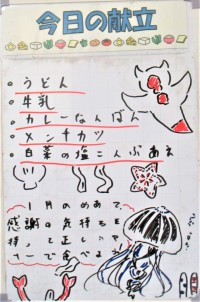 今日の献立
うどん
牛乳
カレーなんばん
メンチカツ
白菜の塩こんぶあえ
1月のめあて
感謝の気持ちを
持って正しいマナ
ーで食べよう